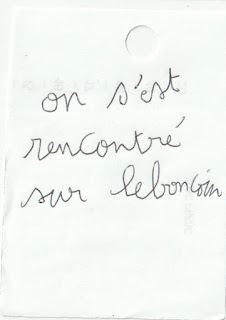 on s'est
rencontré
sur leboncoin